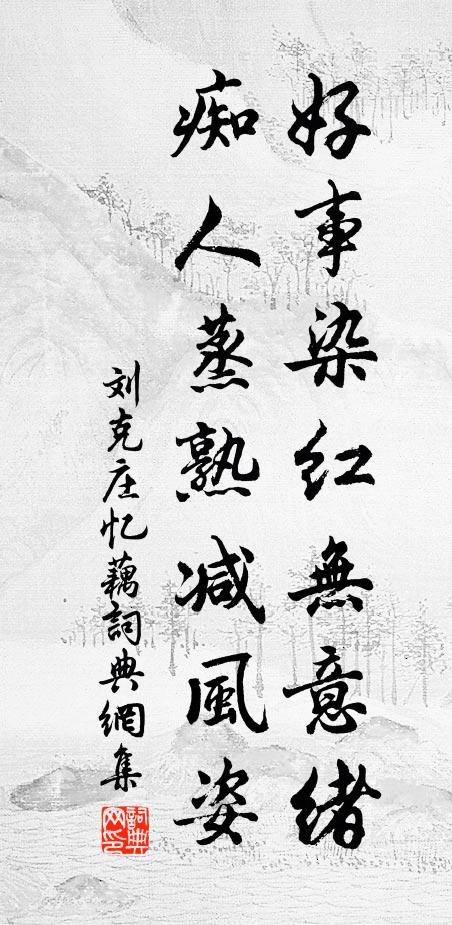 好事染红無意緒
痴人蒸熟减風姿
刘克庄忆藕詞典網集
詞典网印